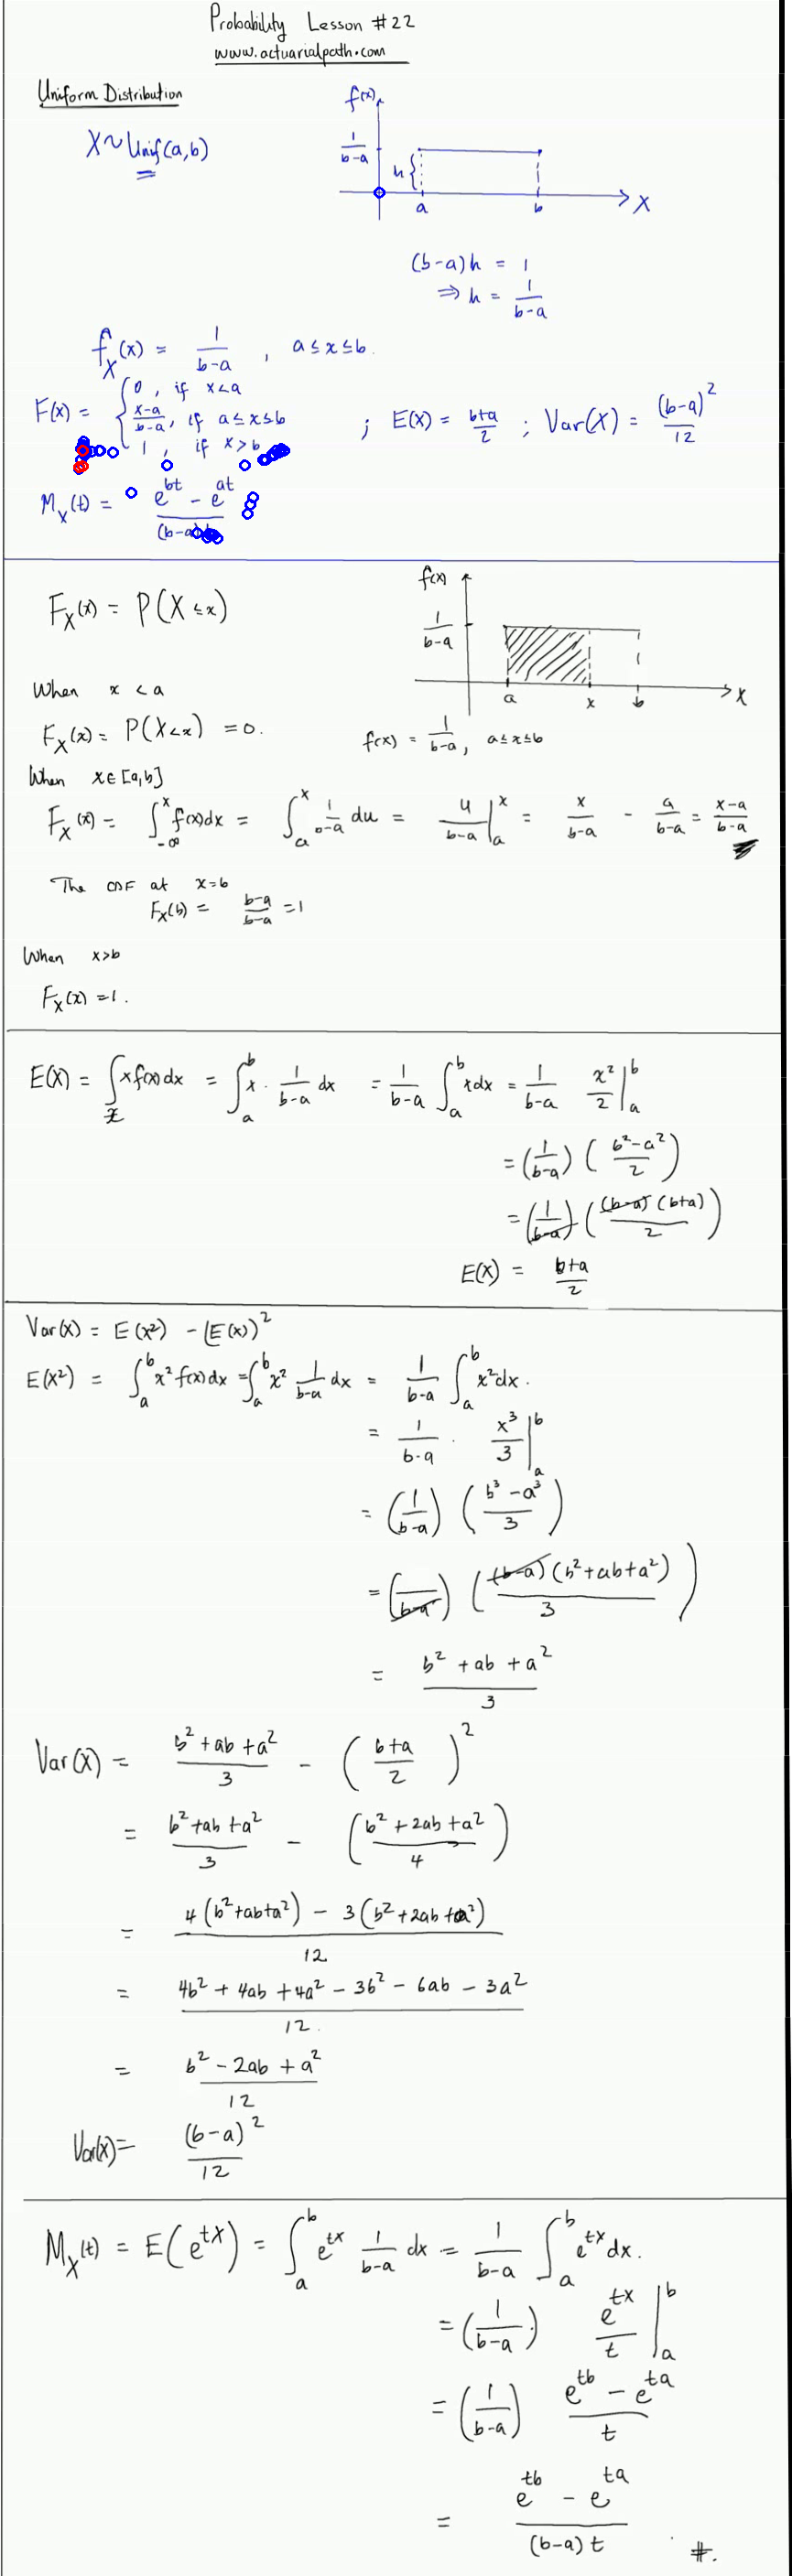 Probability Lesson #22
www.actuarialpath.com
Uniform Distribution
X ~ Unif(a,b)
f(x)
1/(b-a)
h {
a b X
(b-a)h = 1
⇒ h = 1/(b-a)
f_X(x) = 1/(b-a) , a ≤ x ≤ b.
F(x) = { 0 , if x < a
(x-a)/(b-a), if a ≤ x ≤ b
1 , if x > b
; E(X) = (b+a)/2 ; Var(X) = (b-a)^2/12
M_X(t) = (e^{bt} - e^{at})/(b-a)
F_X(x) = P(X ≤ x)
f(x)
1/(b-a)
a x b X
f(x) = 1/(b-a), a ≤ x ≤ b
When x < a
F_X(x) = P(X < x) = 0.
When x ∈ [a,b]
F_X(x) = ∫_{-∞}^{x} f(x)dx = ∫_a^x 1/(b-a) du = u/(b-a) |_a^x = x/(b-a) - a/(b-a) = (x-a)/(b-a)
The CDF at x=b
F_X(b) = (b-a)/(b-a) = 1
When x>b
F_X(x) = 1.
E(X) = ∫_x x f(x) dx = ∫_a^b x · 1/(b-a) dx = 1/(b-a) ∫_a^b x dx = 1/(b-a) x^2/2 |_a^b
= (1/(b-a)) ((b^2-a^2)/2)
= (1/(b-a)) ((b-a)(b+a)/2)
E(X) = (b+a)/2
Var(X) = E(X^2) - (E(X))^2
E(X^2) = ∫_a^b x^2 f(x) dx = ∫_a^b x^2 1/(b-a) dx = 1/(b-a) ∫_a^b x^2 dx.
= 1/(b-a) · x^3/3 |_a^b
= (1/(b-a)) ((b^3 - a^3)/3)
= (1/(b-a)) ((b-a)(b^2+ab+a^2)/3)
= (b^2 + ab + a^2)/3
Var(X) = (b^2 + ab + a^2)/3 - ((b+a)/2)^2
= (b^2 + ab + a^2)/3 - ((b^2 + 2ab + a^2)/4)
= (4(b^2+ab+a^2) - 3(b^2+2ab+a^2))/12
= (4b^2 + 4ab + 4a^2 - 3b^2 - 6ab - 3a^2)/12.
= (b^2 - 2ab + a^2)/12
Var(X) = (b-a)^2/12
M_X(t) = E(e^{tX}) = ∫_a^b e^{tx} 1/(b-a) dx = 1/(b-a) ∫_a^b e^{tx} dx.
= (1/(b-a)) e^{tx}/t |_a^b
= (1/(b-a)) (e^{tb} - e^{ta})/t
= (e^{tb} - e^{ta})/((b-a)t) #.